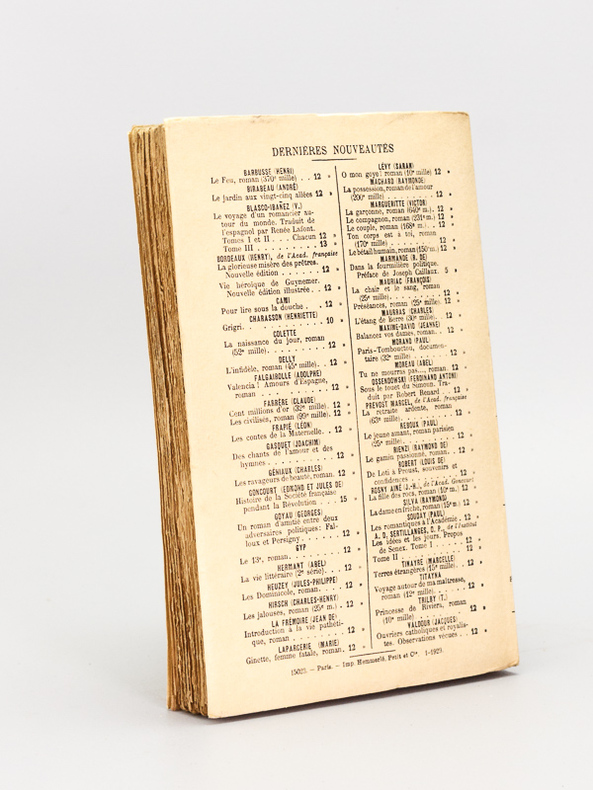 DERNIÈRES NOUVEAUTÉS
BARBUSSE (HENRI)
Le Feu, roman (370e mille) . . 12 »
BIRABEAU (ANDRÉ)
Le jardin aux vingt-cinq allées 12 »
BLASCO-IBAÑEZ (V.)
Le voyage d'un romancier au-
tour du monde. Traduit de
l'espagnol par Renée Lafont.
Tomes I et II . . . Chacun 12 »
Tome III . . . . . . . . . 13 »
BORDEAUX (HENRY), de l'Acad. française
La glorieuse misère des prêtres.
Nouvelle édition . . . . . . 12 »
Vie héroïque de Guynemer.
Nouvelle édition illustrée . . 12 »
CAMI
Pour lire sous la douche . . 12 »
CHARASSON (HENRIETTE)
Grigri. . . . . . . . . . . . 10 »
COLETTE
La naissance du jour, roman
(52e mille). . . . . . . . . 12 »
DELLY
L'infidèle, roman (45e mille) . . 12 »
FALGAIROLLE (ADOLPHE)
Valencia ! Amours d'Espagne,
roman . . . . . . . . . . . 12 »
FARRÈRE (CLAUDE)
Cent millions d'or (32e mille). 12 »
Les civilisés, roman (99e mille). 12 »
FRAPIÉ (LÉON)
Les contes de la Maternelle. . 12 »
GASQUET (JOACHIM)
Des chants de l'amour et des
hymnes . . . . . . . . . . . 12 »
GÉNIAUX (CHARLES)
Les ravageurs de beauté, roman. 12 »
GONCOURT (EDMOND ET JULES DE)
Histoire de la Société française
pendant la Révolution . . . 15 »
GOYAU (GEORGES)
Un roman d'amitié entre deux
adversaires politiques : Fal-
loux et Persigny. . . . . . 12 »
GYP
Le 13e, roman. . . . . . . . 12 »
HERMANT (ABEL)
La vie littéraire (2e série). . . 12 »
HEUZEY (JULES-PHILIPPE)
Les Dominicole, roman. . . . 12 »
HIRSCH (CHARLES-HENRY)
Les jalouses, roman (25e m.) . . 12 »
LA FRÉMOIRE (JEAN DE)
Introduction à la vie pathéti-
que, roman . . . . . . . . 12 »
LAPARCERIE (MARIE)
Ginette, femme fatale, roman. 12 »
LÉVY (SARAH)
O mon goye ! roman (10e mille) 12 »
MACHARD (RAYMONDE)
La possession, roman de l'amour
(200e mille) . . . . . . . . 12 »
MARGUERITTE (VICTOR)
La garçonne, roman (640e m.). 12 »
Le compagnon, roman (231e m.) 12 »
Le couple, roman (168e m.) . . 12 »
Ton corps est à toi, roman
(170e mille) . . . . . . . . 12 »
Le bétail humain, roman (150e m.) 12 »
MARMANDE (R. DE)
Dans la fourmilière politique.
Préface de Joseph Caillaux. 5 »
MAURIAC (FRANÇOIS)
La chair et le sang, roman
(25e mille) . . . . . . . . 12 »
Préséances, roman (25e mille). 12 »
MAURRAS (CHARLES)
L'étang de Berre (30e mille). . 12 »
MAXIME-DAVID (JEANNE)
Balancez vos dames, roman. . 12 »
MORAND (PAUL)
Paris-Tombouctou, documen-
taire (32e mille) . . . . . . 12 »
MOREAU (ABEL)
Tu ne mourras pas..., roman. 12 »
OSSENDOWSKI (FERDINAND ANTONI)
Sous le fouet du Simoun. Tra-
duit par Robert Renard . . 12 »
PREVOST MARCEL, de l'Acad. française
La retraite ardente, roman
(63e mille). . . . . . . . . 12 »
REBOUX (PAUL)
Le jeune amant, roman parisien
(25e mille) . . . . . . . . 12 »
RIENZI (RAYMOND DE)
Le gamin passionné, roman. . 12 »
ROBERT (LOUIS DE)
De Loti à Proust, souvenirs et
confidences . . . . . . . . 12 »
ROSNY AINÉ (J.-H.), de l'Acad. Goncourt
La fille des rocs, roman (10e m.) 12 »
SILVA (RAYMOND)
La dame en friche, roman (15e m.) 12 »
SOUDAY (PAUL)
Les romantiques à l'Académie . 12 »
A. D. SERTILLANGES, O. P., de l'Institut
Les idées et les jours. Propos
de Senex. Tome I . . . . . 12 »
Tome II . . . . . . . . . . 12 »
TINAYRE (MARCELLE)
Terres étrangères (15e mille) . 12 »
TITAYNA
Voyage autour de ma maîtresse,
roman (12e mille) . . . . . 12 »
TRILBY (T.)
Princesse de Riviera, roman
(10e mille) . . . . . . . . 12 »
VALDOUR (JACQUES)
Ouvriers catholiques et royalis-
tes. Observations vécues . . 12 »
15023. — Paris. — Imp. Hemmerlé, Petit et Cie 1-1929.